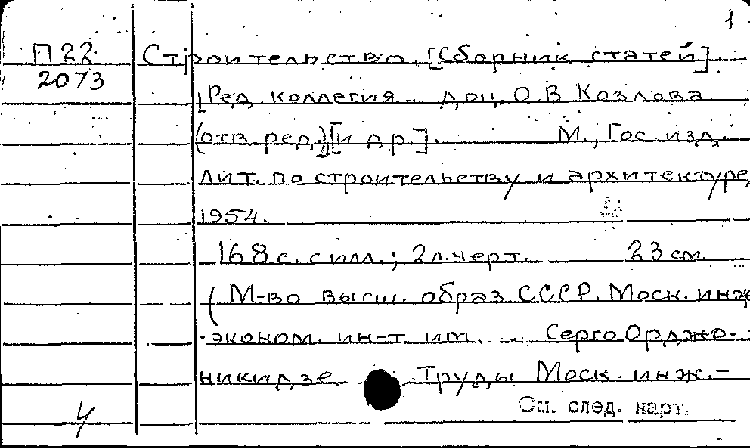 1
П22 Строительство. [Сборник статей]
2073
[Ред. коллегия доц. О.В. Козлова
(отв. ред.)[и др.]. М., Гос. изд.
лит. по строительству и архитектуре,
1954.
168 с. с илл.; 2 л. черт. 23 см.
(М-во высш. образ СССР. Моск. инж.
-эконом. ин-т им. Серго Орджо-
никидзе Труды Моск. инж.-
См. след. карт.